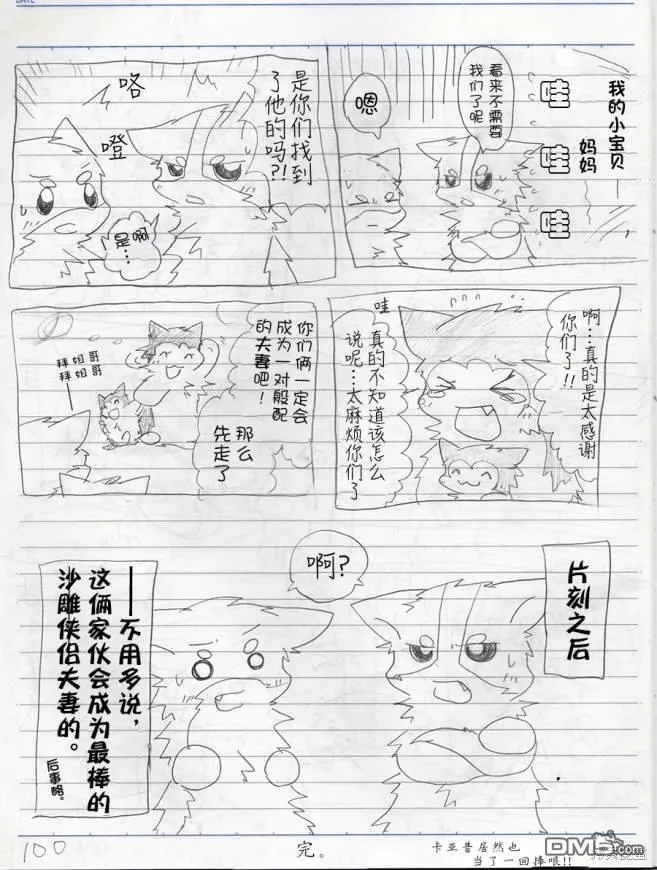 我的小宝贝
妈妈
哇
哇
哇
看来不需要
我们了呢
嗯
是你们找到
了他的吗?!
咯
噔
是啊
…
啊…真的是太感谢
你们了!!
哇
真的不知道该怎么
说呢…太麻烦你们了
你们俩一定会
成为一对般配
的夫妻吧!
那么
先走了
哥哥
姐姐
拜拜
片刻之后
啊?
——不用多说,
这俩家伙会成为最棒的
沙雕侠侣夫妻的。
后事略。
100
完。
卡亚普居然也
当了一回捧哏!!